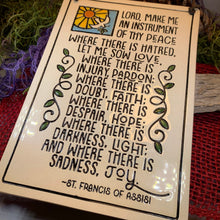 LORD, MAKE ME
AN INSTRUMENT
OF THY PEACE
WHERE THERE IS HATRED,
LET ME SOW LOVE.
WHERE THERE IS
INJURY, PARDON;
WHERE THERE IS
DOUBT, FAITH;
WHERE THERE IS
DESPAIR, HOPE
WHERE THERE IS
DARKNESS, LIGHT;
AND WHERE THERE IS
SADNESS, JOY.
-ST. FRANCIS OF ASSISI